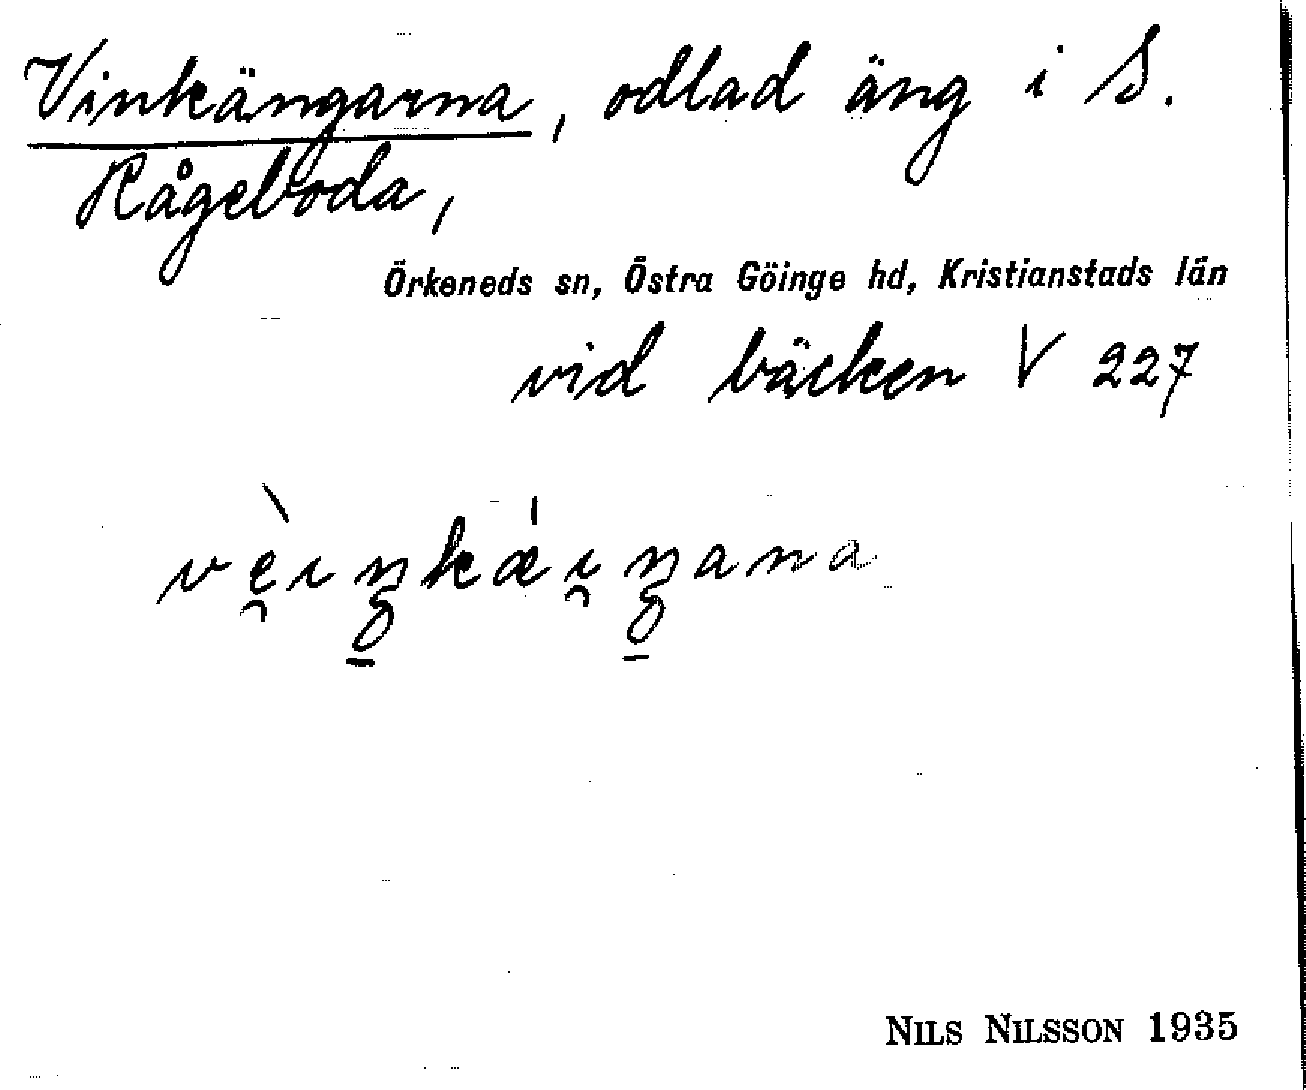 Vinkängarna, odlad äng i S.
Rågeboda,
Örkeneds sn, Östra Göinge hd, Kristianstads län
vid bäcken V 227
vè̯ıŋkǽı̯ŋana
NILS NILSSON 1935